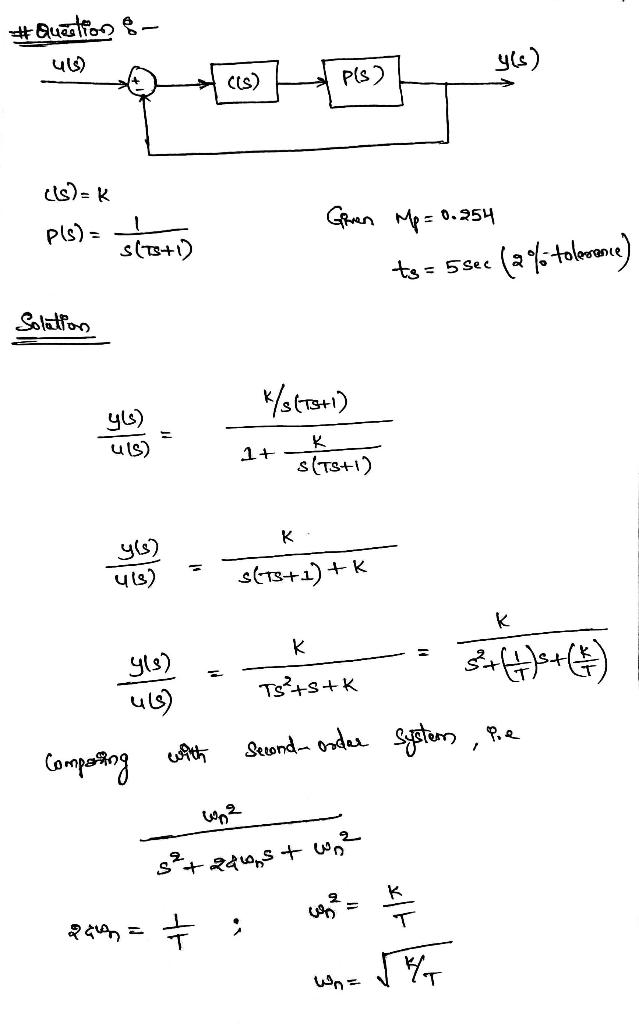 # Question :-
u(s) + - C(S) P(S) y(s)
C(S) = K
P(S) = 1 / S(TS+1)
Given Mp = 0.254
ts = 5 sec (2% tolerance)
Solution
y(s)/u(s) = (K/S(TS+1)) / (1 + K/S(TS+1))
y(s)/u(s) = K / (S(TS+1) + K)
y(s)/u(s) = K / (TS²+S+K) = K / (S²+(1/T)S+(K/T))
Comparing with Second-order System, i.e
ωn² / (S² + 2ζωnS + ωn²)
2ζωn = 1/T ; ωn² = K/T
ωn = √(K/T)